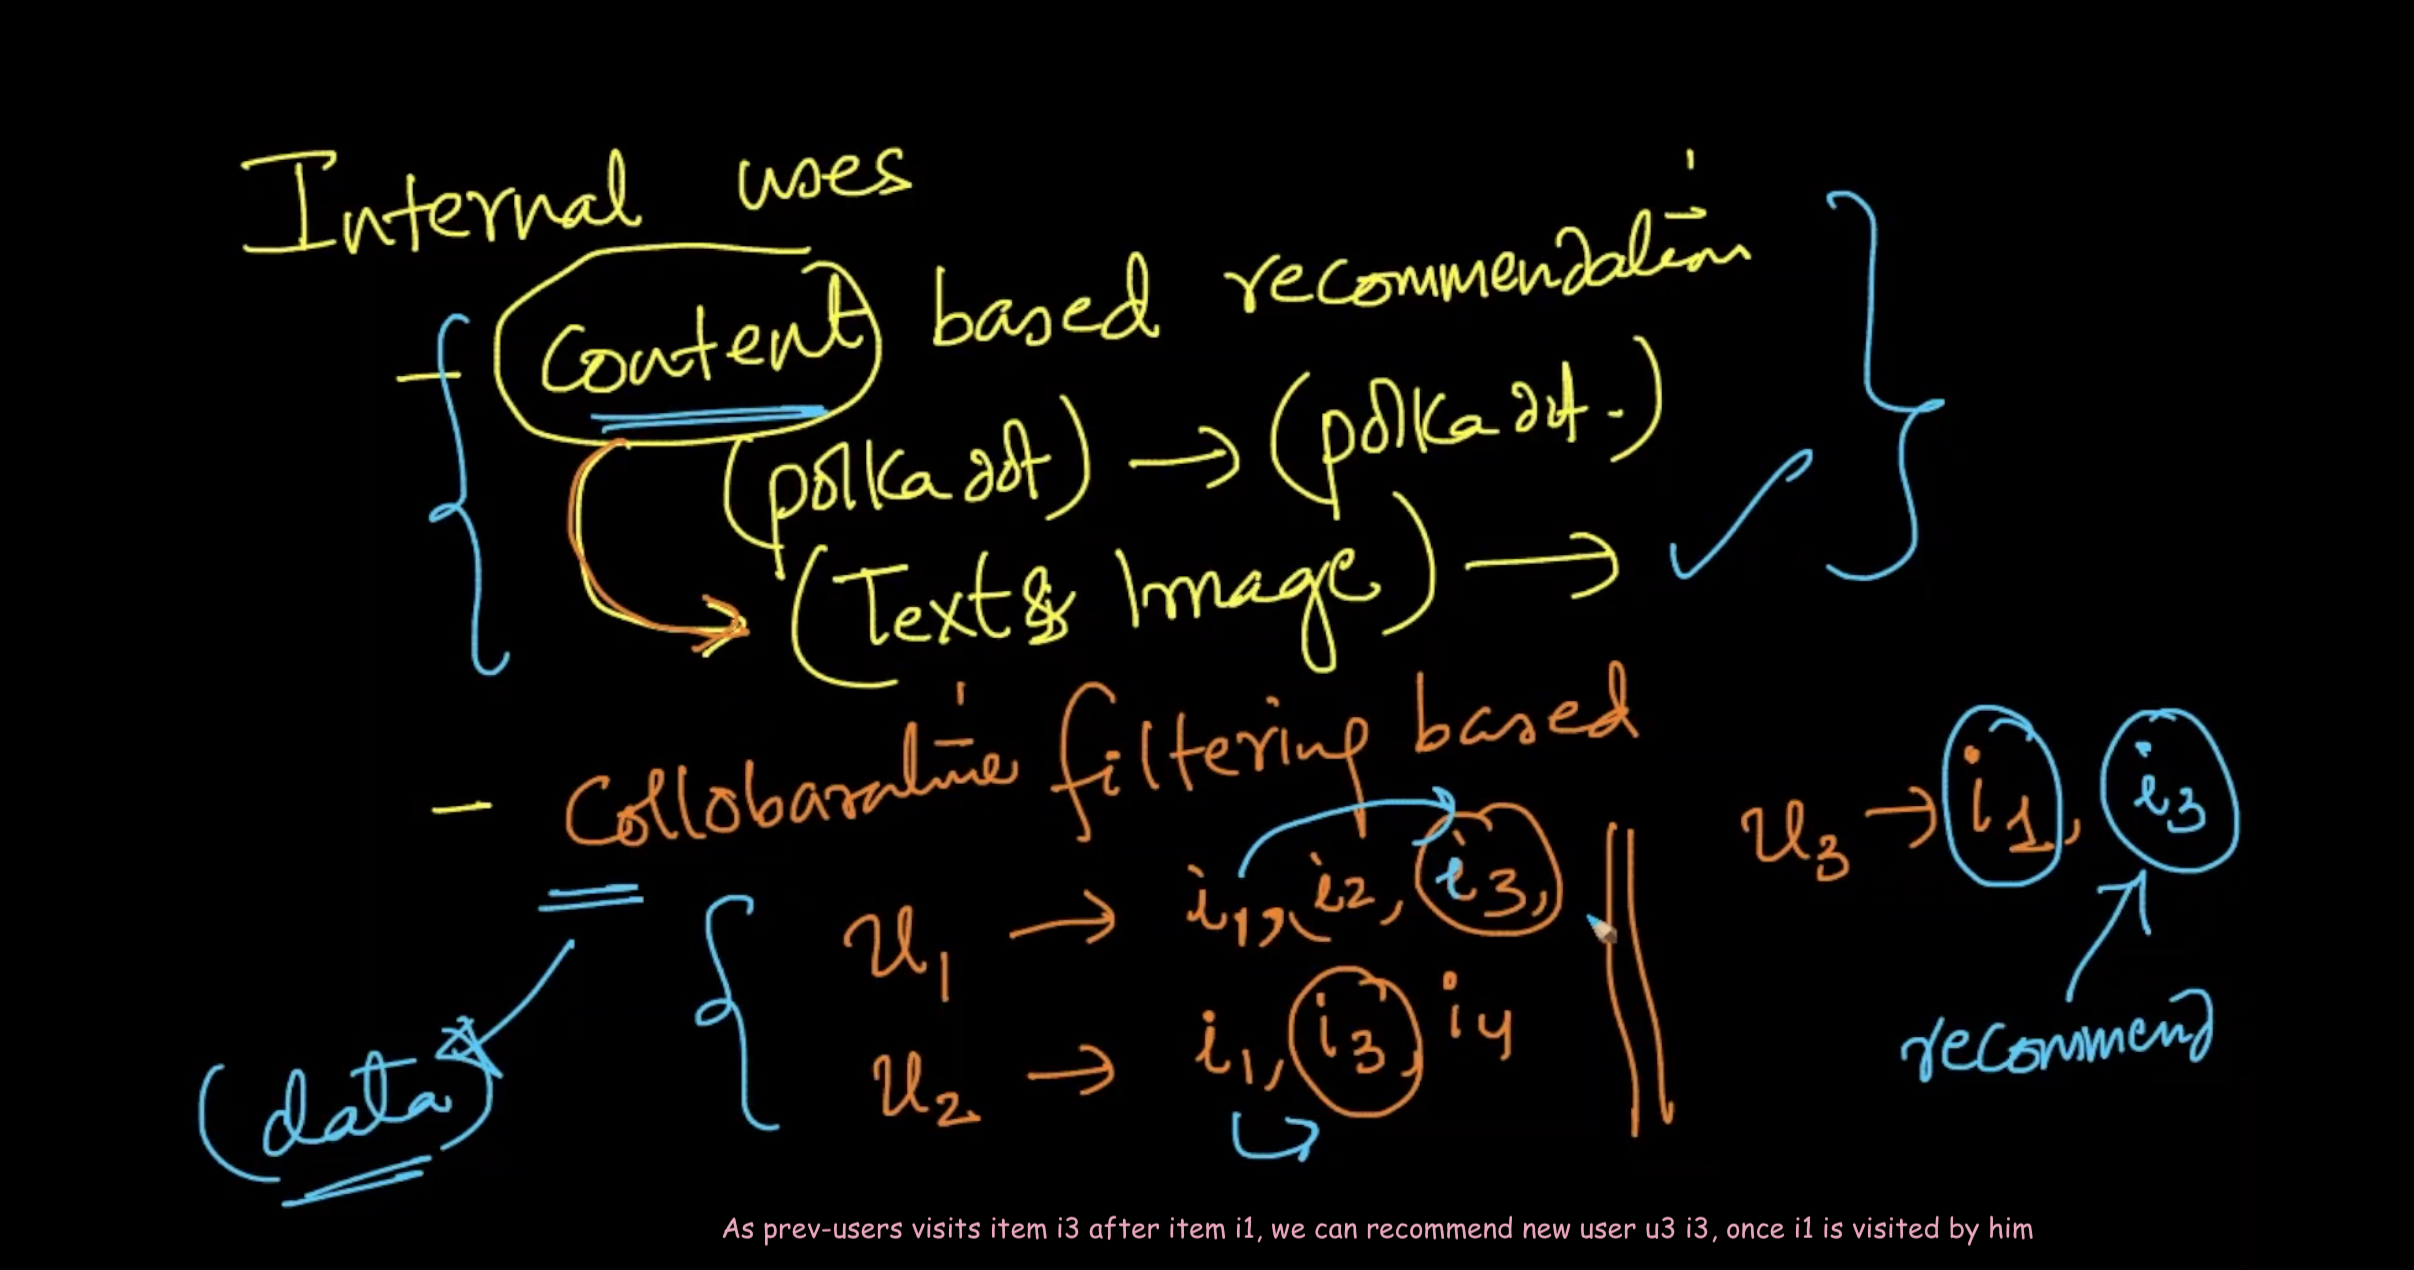 Internal uses
- Content based recommendation
(polka dot) → (polka dot.)
(Text & Image) → ✓
- Collobarative filtering based
u1 → i1, i2, i3,
u2 → i1, i3, i4
u3 → i1, i3
recommend
(data)
As prev-users visits item i3 after item i1, we can recommend new user u3 i3, once i1 is visited by him